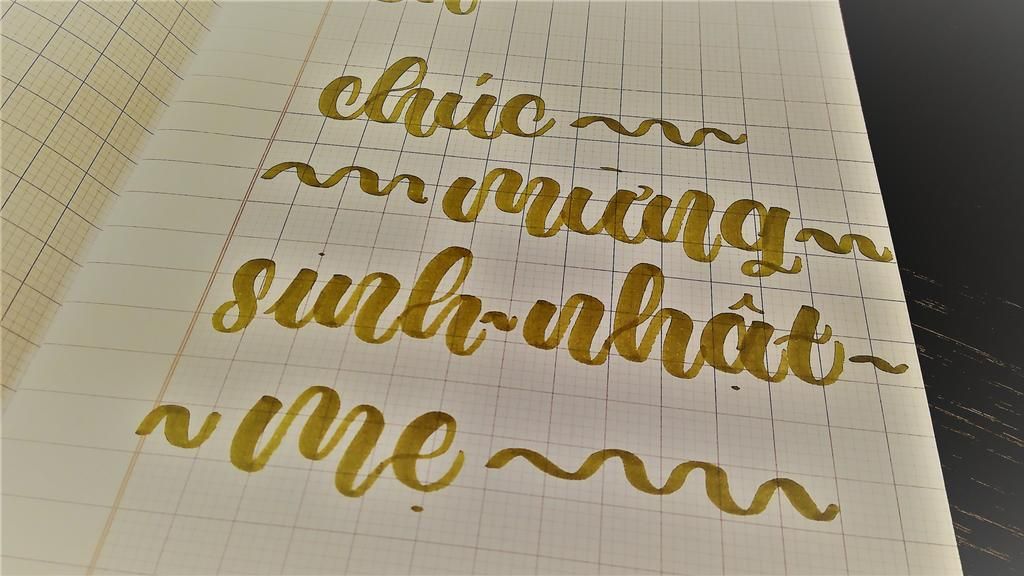 chúc
mừng
sinh nhật
mẹ